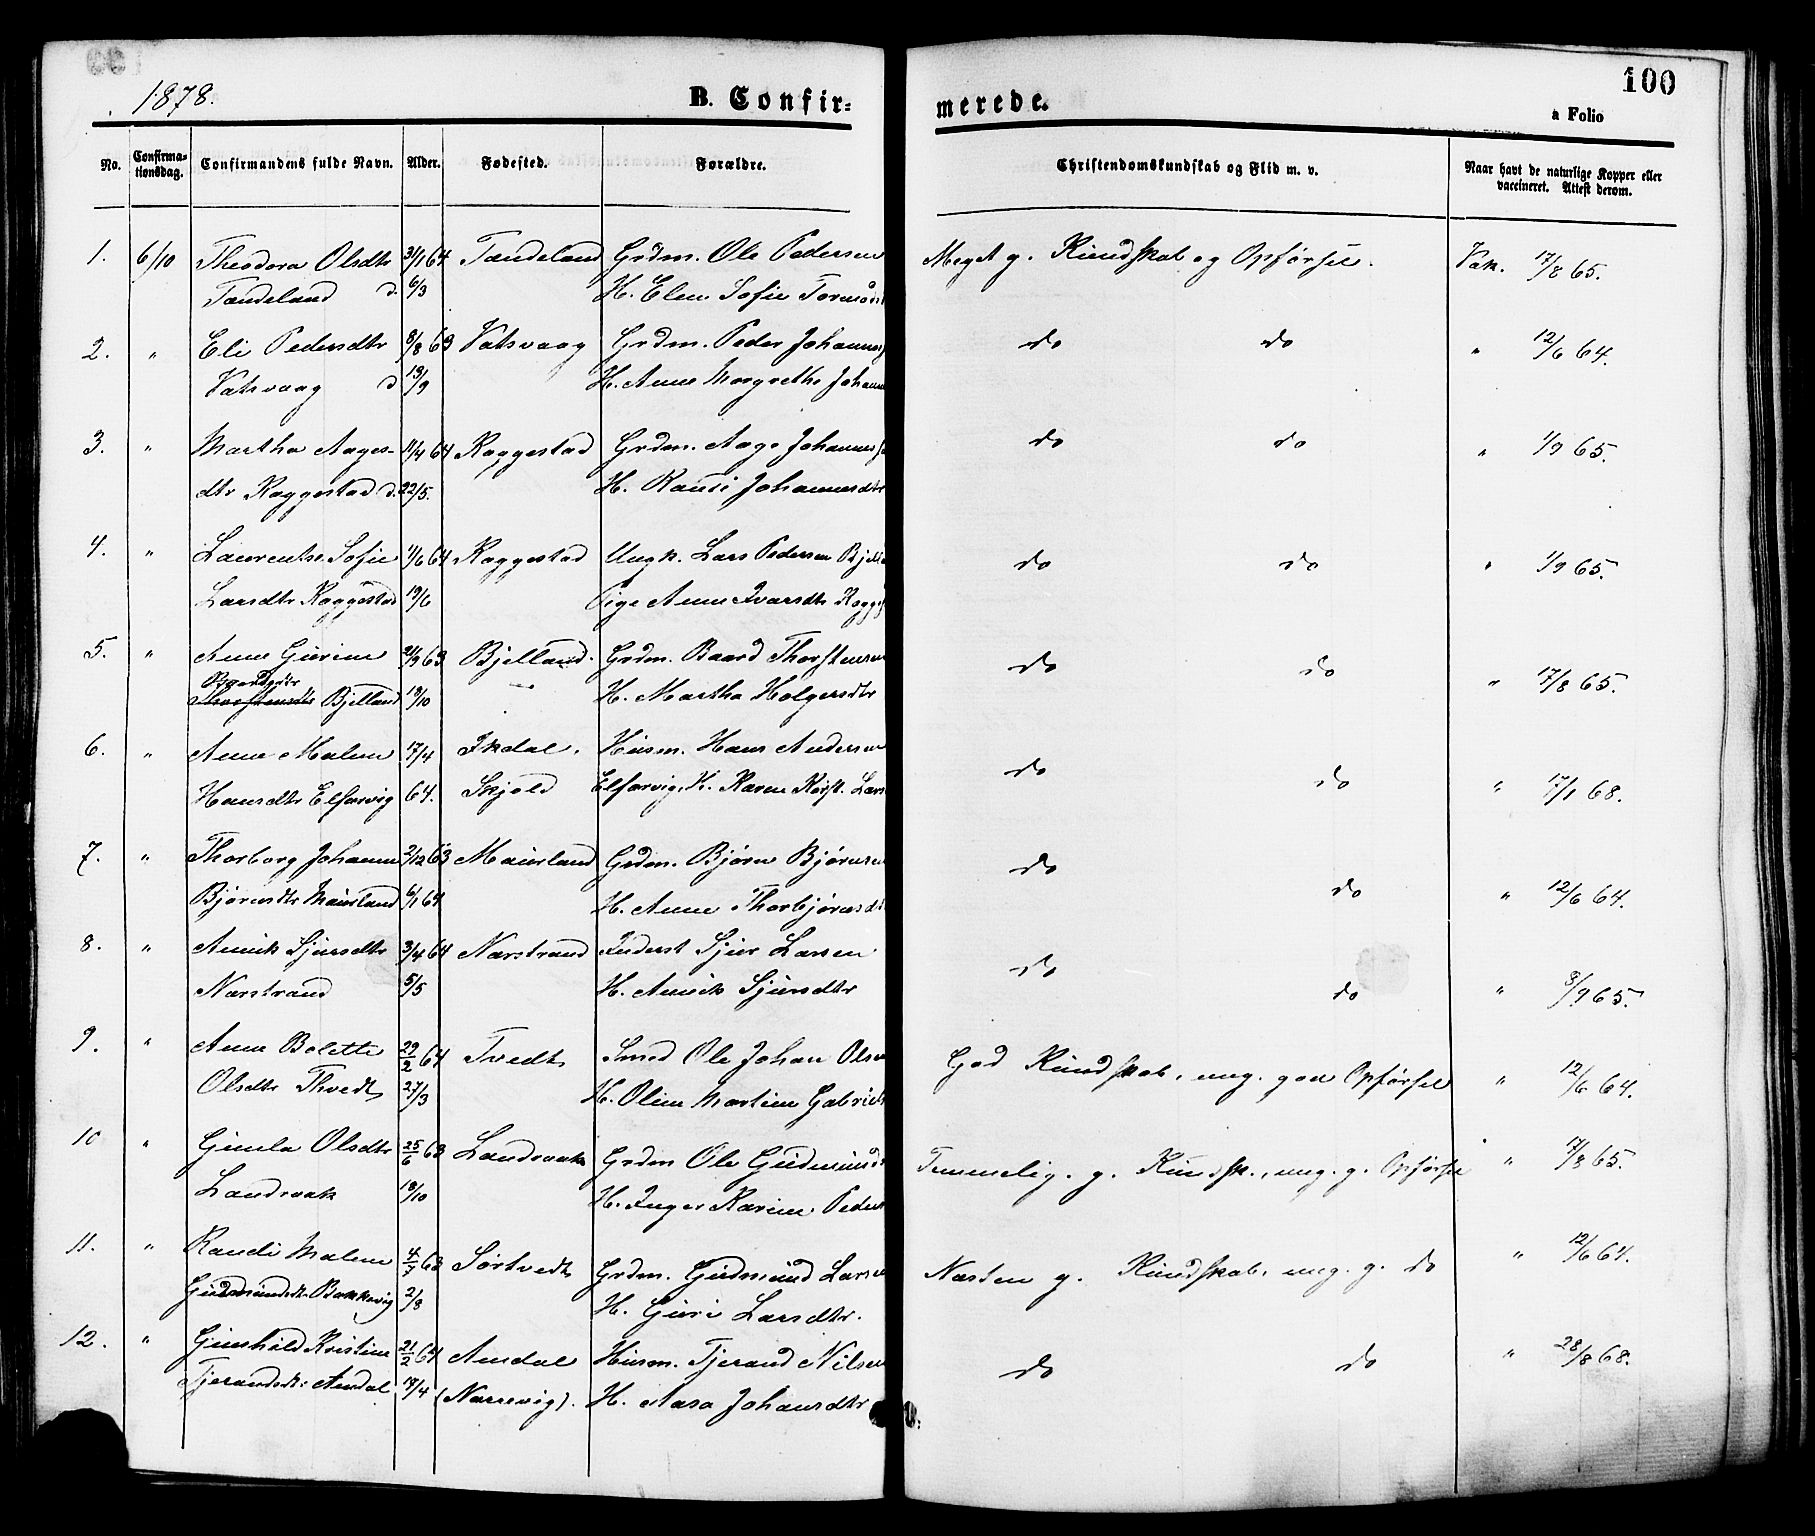 1878.
B. Confir-
merede.
100
a Folio
No.
Confirma-
tionsdag.
Confirmandens fulde Navn.
Alder.
Fødested.
Forældre.
Christendomskundskab og Flid m. v.
Naar havt de naturlige Kopper eller
vaccineret. Attest derom.
1. 6/10 Theodora Olsdtr 31/1 64 Tandeland Grdm. Ole Pedersen Meget g. Kundskab og Opførsel. Vak. 17/8 65.
Tandeland d. 6/3 H. Elen Sofie
2. " Eli Pedersdtr 8/8 63 Vatsvaag Grdm. Peder Johannes do do " 12/6 64.
Vatsvaag d 13/9 H. Anne Margrethe Johann
3. " Martha Aages- 11/4 64 Raggestad Grdm. Aage Johannes do do " 1/9 65.
dtr Raggestad d. 22/5. H. Rausi Johannesdtr
4. " Laurentse Sofie 1/6 64 Raggestad Ungk. Lars Pedersen Bjell do do " 1/9 65.
Larsdtr Raggestad 19/6 Pige Anne Ivarsdtr Ragg
5. " Anne Gurine 21/9 63 Bjelland. Grdm. Baard Thorstensen do do " 17/8 65.
Baardsdtr
Thorstensdtr Bjelland 18/10 " H. Martha Holgersdtr
6. " Anne Malene 17/4 Ikdal. Husm. Hans Andersen do do " 17/1 68.
Hansdtr Elfarvig 64. Skjold Elfarvig, H. Karen Kirst. Lars
7. " Thorborg Johanne 2/12 63 Maurland Grdm. Bjørn Bjørnsen do do " 12/6 64.
Bjørnsdtr Maurland 6/1 64 H. Anne Thorbjørnsd
8. " Annik Sjursdtr 3/4 64 Narstrand Inderst Sjur Larsen do do " 8/9 65.
Narstrand 5/5 H. Annik Sjursdtr
9. " Anne Bolette 29/2 64 Tvedt Smed Ole Johan Olsen God Kundskab, mg. god Opførsel " 12/6 64.
Olsdtr Thvedt 27/3 H. Oline Martine Gabriels
10 " Gunla Olsdtr 25/6 63 Landsvak Grdm Ole Gudmunds Temmelig g. Kundsk., mg. g. Opførsel " 17/8 65.
Landsvak 18/10 H. Inger Karine Peders
11. " Randi Malene 4/7 63 Sørtvedt Grdm. Gudmund Larsen Næsten g. Kundskab, mg. g. do " 12/6 64.
Gudmundsdt. Bakkevig 2/8 H. Guri Larsdtr.
12. " Gunhild Kristine 21/2 64 Amdal Husm. Tjerand Nilsen do do " 28/8 68.
Tjerandsdt. Amdal 18/4 (Narrevig). H. Aasa Johansdtr